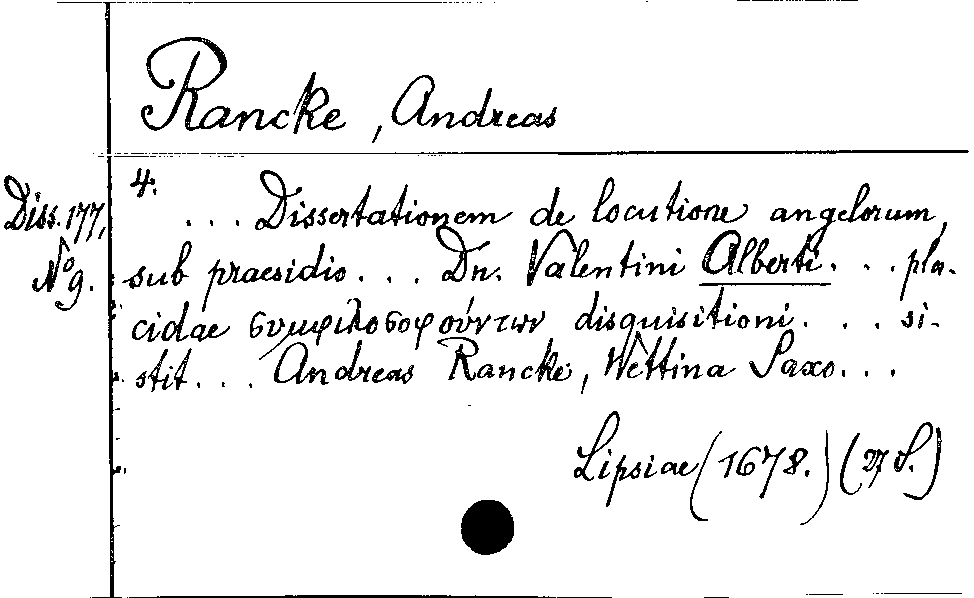 Rancke, Andreas
4.
Diss. 177,
No 9.
... Dissertationem de locutione angelorum,
sub praesidio ... Dn. Valentini Alberti ... pla-
cidae συμφιλοσοφούντων disquisitioni ... si-
stit ... Andreas Rancke, Wettina Saxo ...
Lipsiae (1678.) (27 S.)